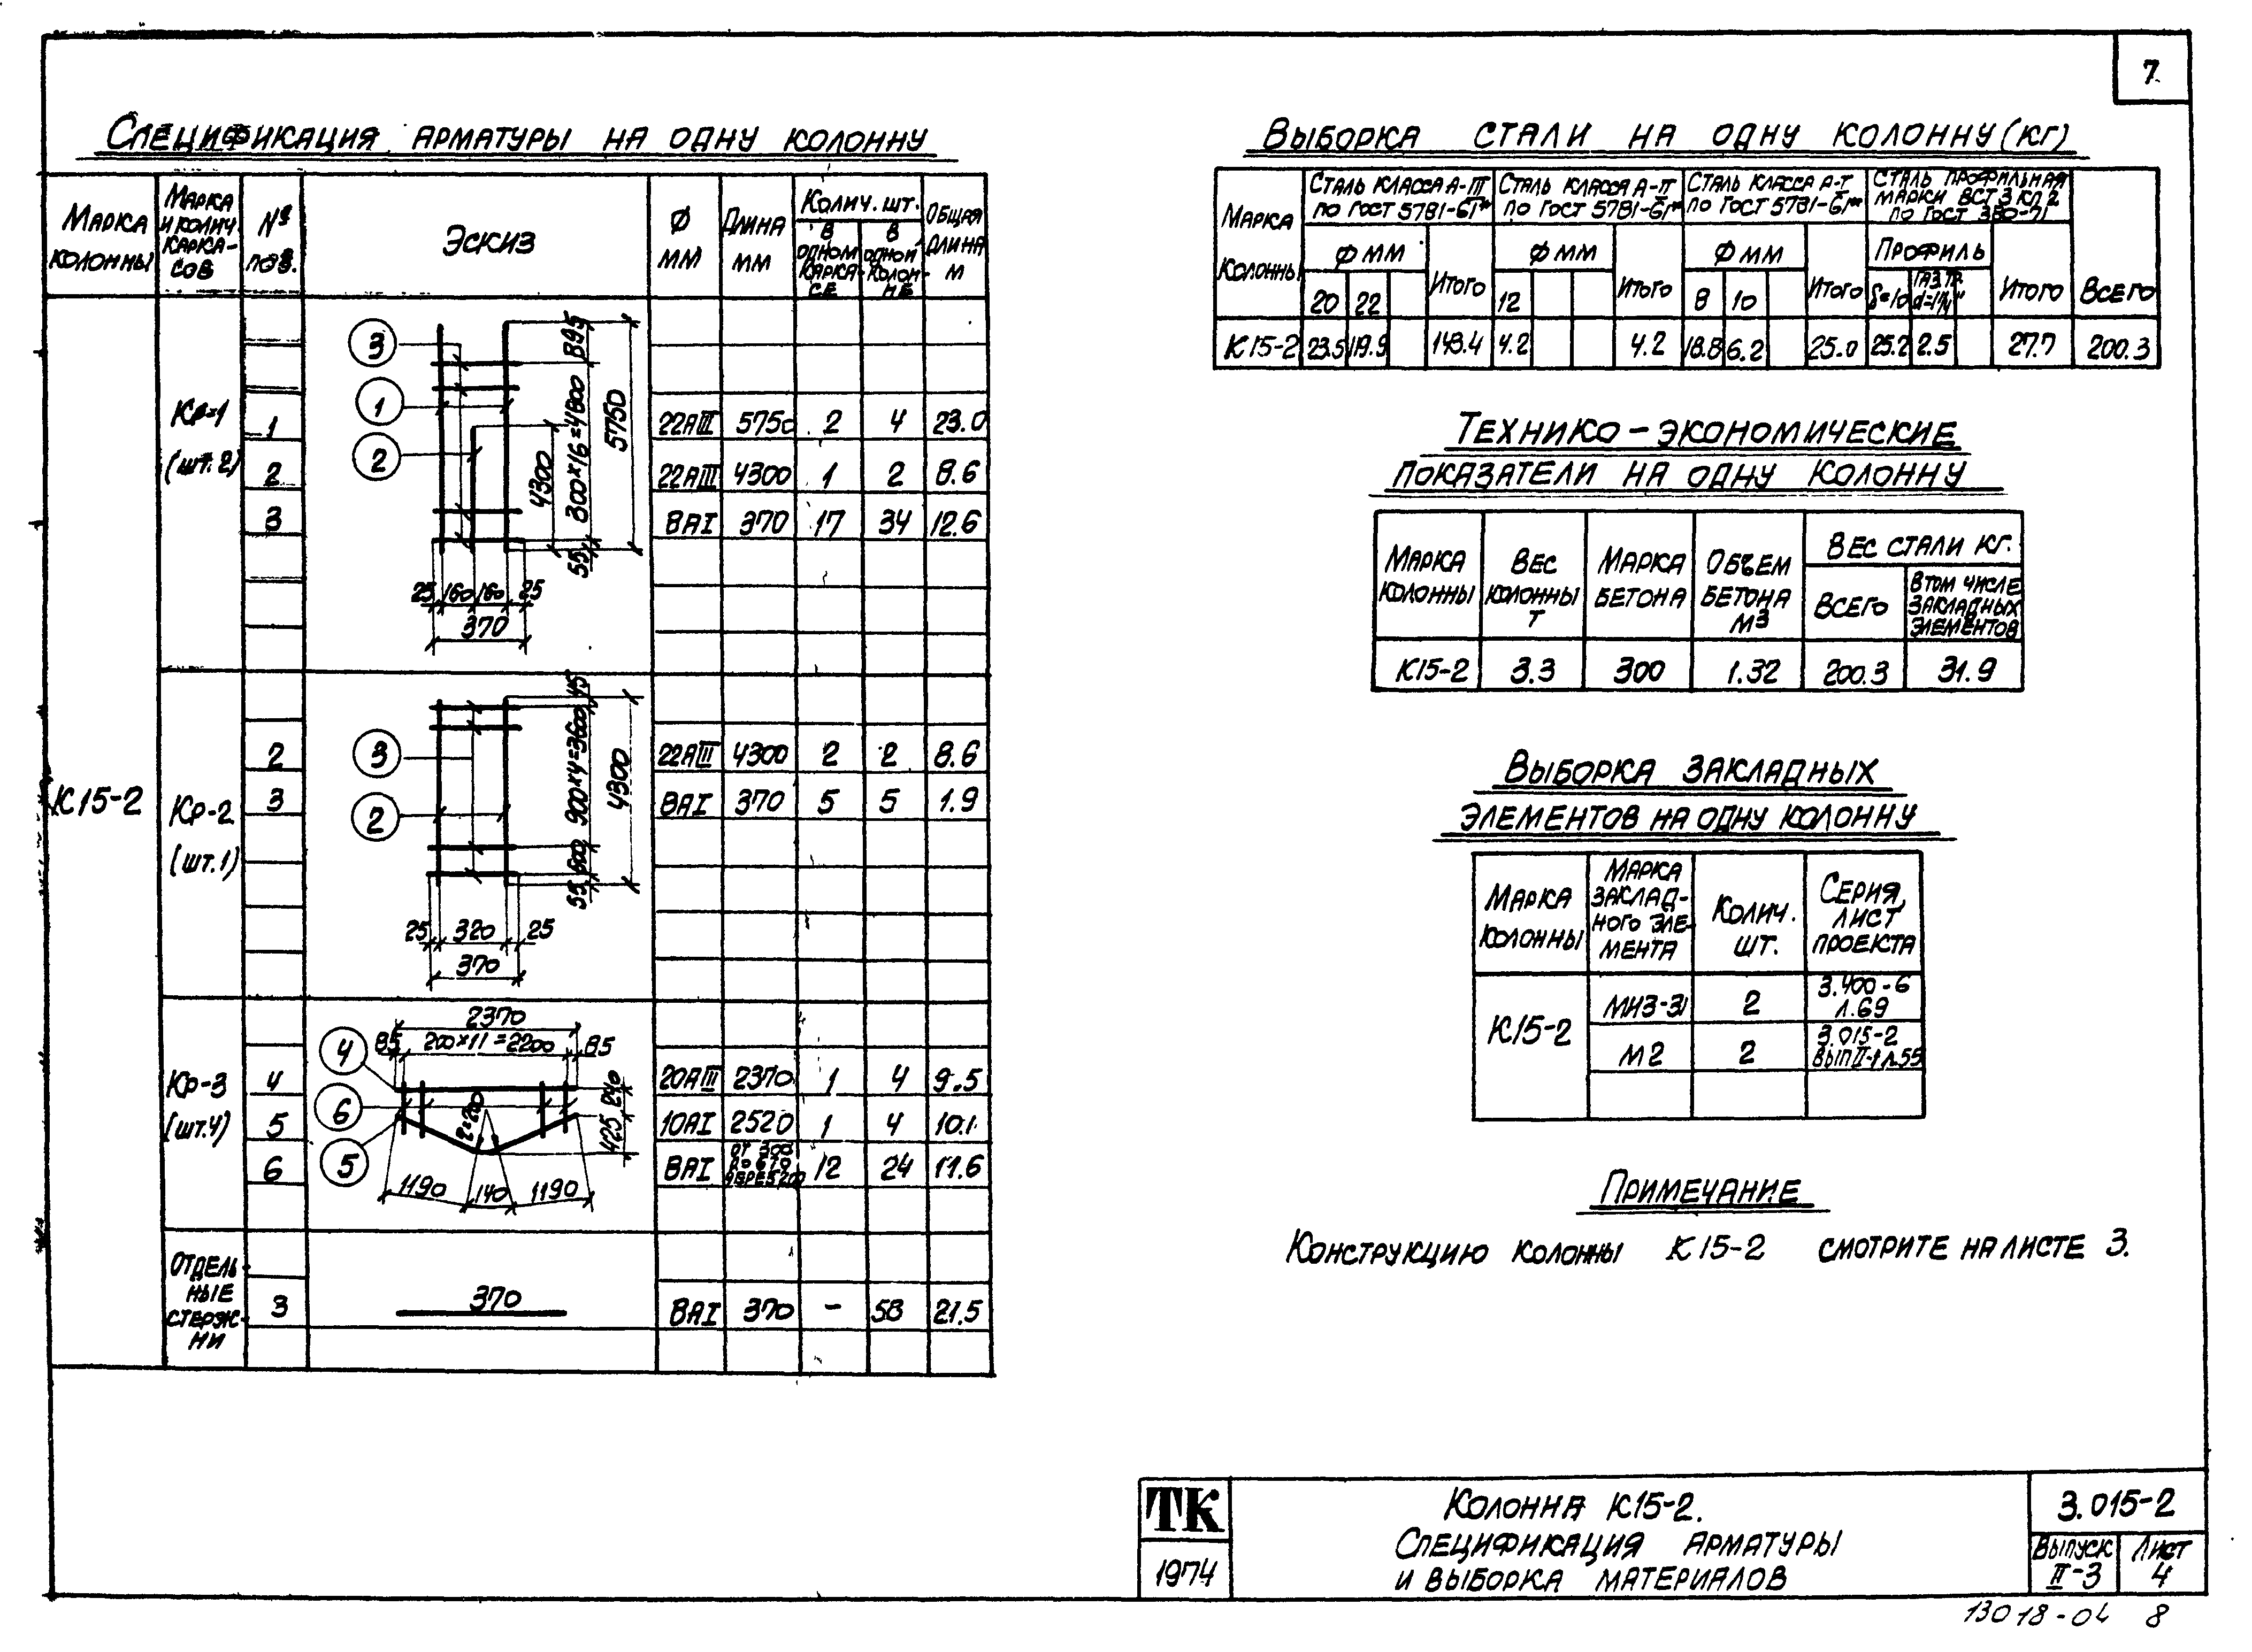 7
Спецификация арматуры на одну колонну
Марка колонны
Марка и колич. каркасов
№ поз.
Эскиз
Ф мм
Длина мм
Колич. шт.
в одном каркасе
в одной колонне
Общая длина м
К15-2
Кр-1 (шт. 2)
1 22АIII 5750 2 4 23.0
2 22АIII 4300 1 2 8.6
3 8АI 370 17 34 12.6
3
1
2
895
300×16=4800
5750
4300
55
25 160 160 25
370
Кр-2 (шт. 1)
2 22АIII 4300 2 2 8.6
3 8АI 370 5 5 1.9
3
2
45
900×4=3600
4300
600
55
25 320 25
370
Кр-3 (шт. 4)
4 20АIII 2370 1 4 9.5
5 10АI 2520 1 4 10.1
6 8АI от 300 до 670 12 24 11.6
4
6
5
2370
85 200×11=2200 85
240
425
1190 140 1190
Отдельные стержни
3 370 8АI 370 - 58 21.5
Выборка стали на одну колонну (кг)
Марка колонны
Сталь класса А-III по ГОСТ 5781-61*
Сталь класса А-II по ГОСТ 5781-61*
Сталь класса А-I по ГОСТ 5781-61*
Сталь профильная марки ВСт 3 кп 2 по ГОСТ 380-71
Ф мм Итого Ф мм Итого Ф мм Итого Профиль Итого Всего
20 22 12 8 10 δ=10 Газ.тр. d=1¼"
К15-2 23.5 119.9 143.4 4.2 4.2 18.8 6.2 25.0 25.2 2.5 27.7 200.3
Технико-экономические
показатели на одну колонну
Марка колонны
Вес колонны т
Марка бетона
Объем бетона м3
Вес стали кг.
Всего
В том числе закладных элементов
К15-2 3.3 300 1.32 200.3 31.9
Выборка закладных
элементов на одну колонну
Марка колонны
Марка закладного элемента
Колич. шт.
Серия, лист проекта
К15-2
МН3-31 2 3.400-6 л.69
М2 2 3.015-2 вып II-1 л.55
Примечание
Конструкцию колонны К15-2 смотрите на листе 3.
ТК
1974
Колонна К15-2.
Спецификация арматуры
и выборка материалов
3.015-2
Выпуск II-3
Лист 4
13018-04 8